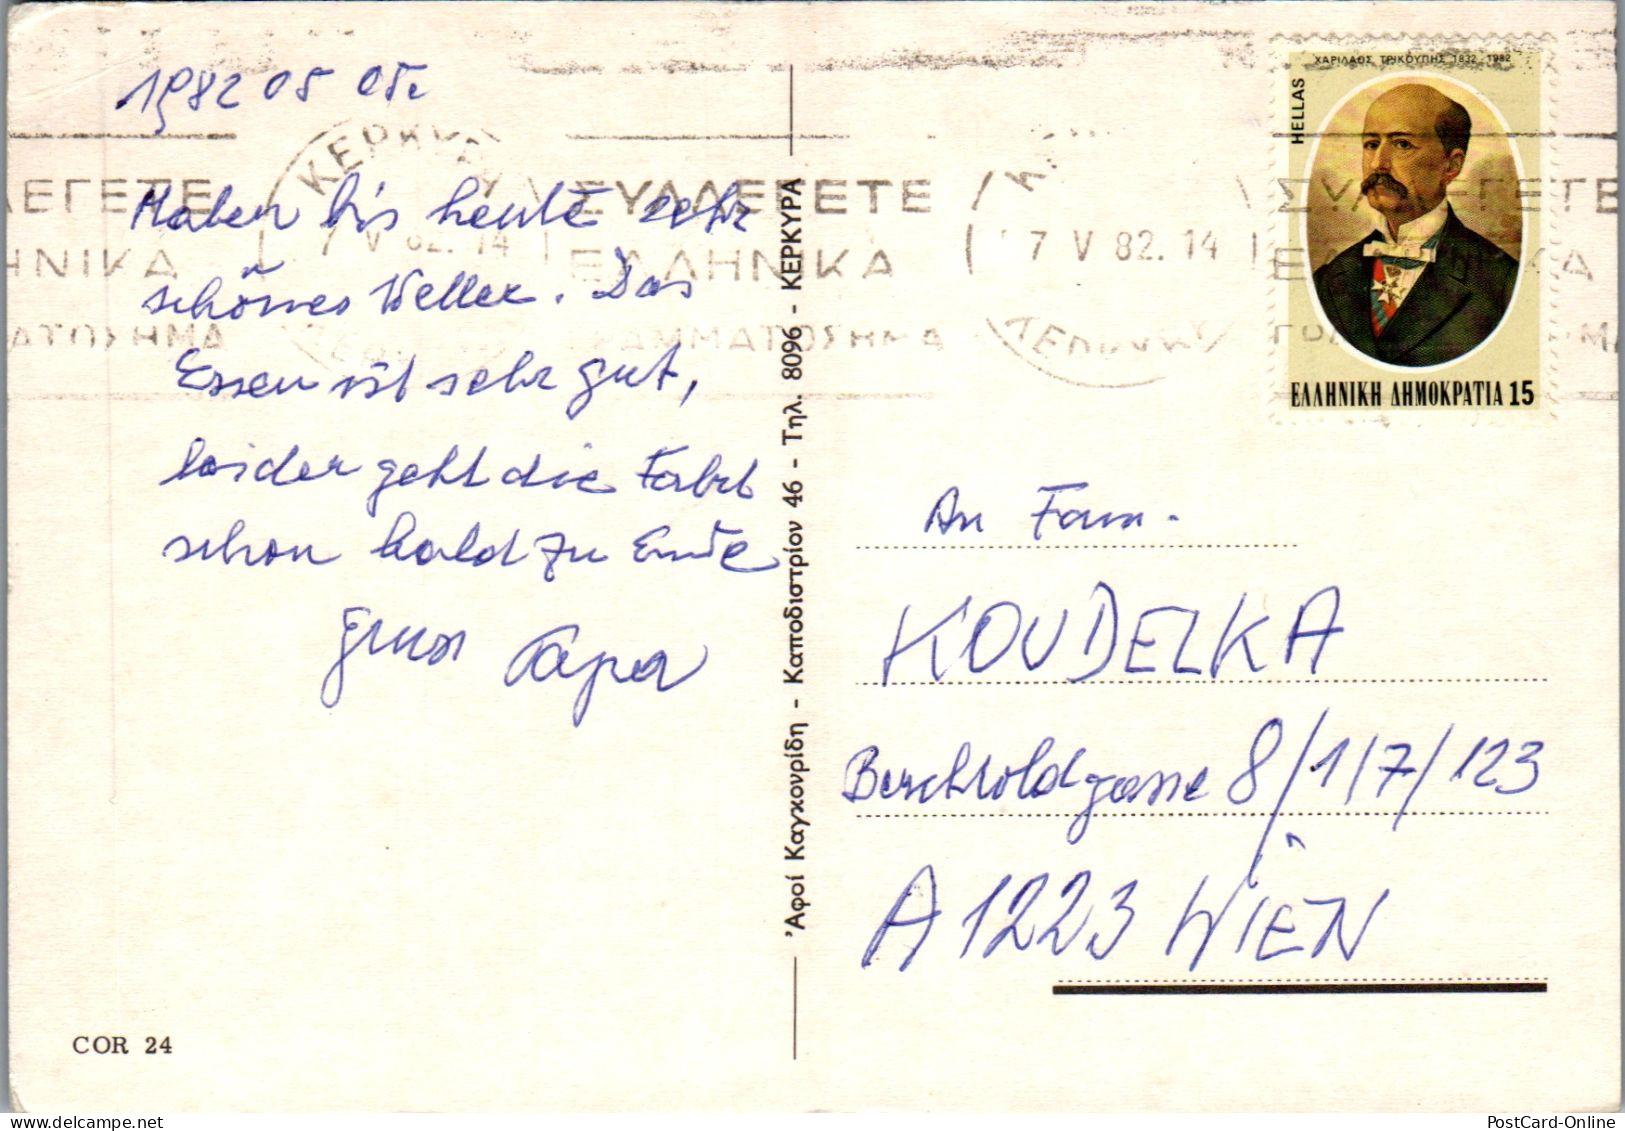 1982 05 05.
Haben bis heute sehr
schönes Wetter. Das
Essen ist sehr gut,
leider geht die Fahrt
schon bald zu Ende
Gruss Papa
COR 24
Ἀφοί Καγκουρίδη - Καποδιστρίου 46 - Τηλ. 8096 - ΚΕΡΚΥΡΑ
ΚΕΡΚΥΡΑ
7 V 82. 14
ΣΥΛΛΕΓΕΤΕ
ΕΛΛΗΝΙΚΑ
ΓΡΑΜΜΑΤΟΣΗΜΑ
7 V 82. 14
ΧΑΡΙΛΑΟΣ ΤΡΙΚΟΥΠΗΣ 1832-1982
HELLAS
ΕΛΛΗΝΙΚΗ ΔΗΜΟΚΡΑΤΙΑ 15
An Fam.
KOUDELKA
Berchtoldgasse 8/1/7/123
A 1223 WIEN
PostCard-Online